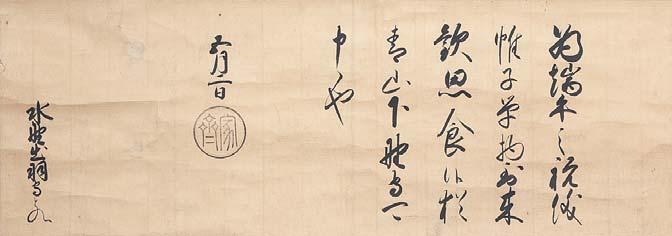 為端午之祝儀
帷子単物到来
歓思食候猶
青山下野守可
申候也
五月日
家齊
水野出羽守とのへ